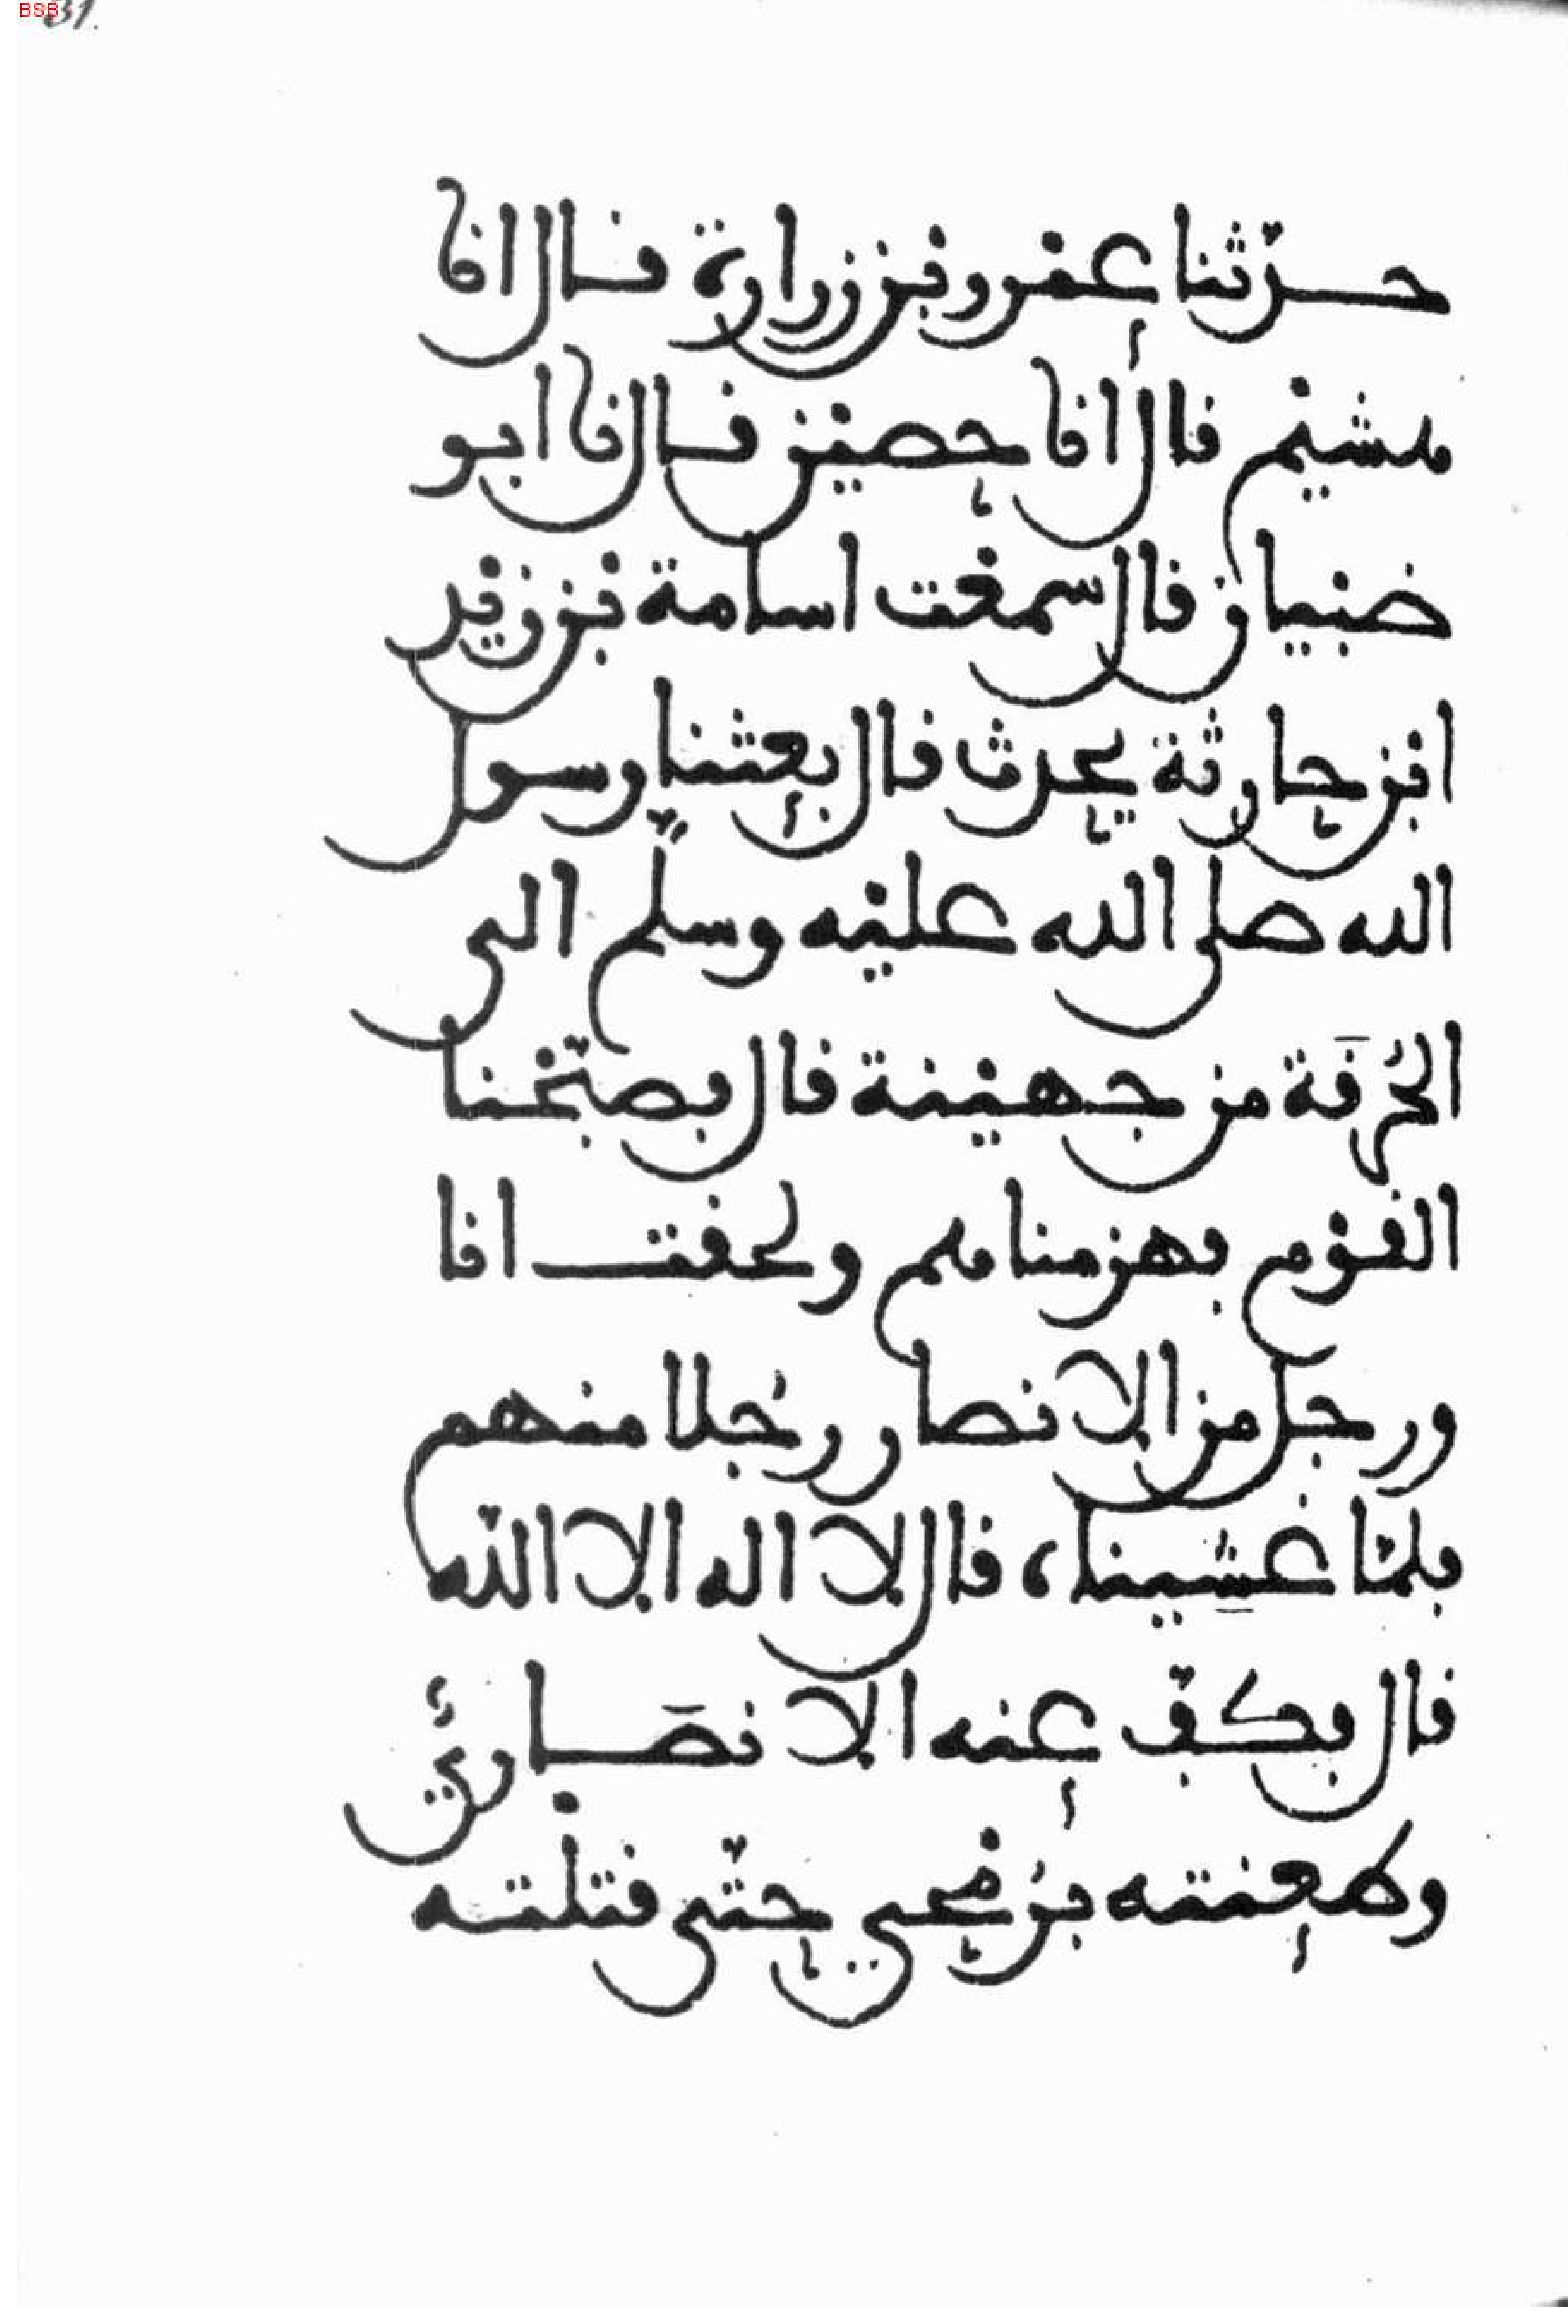 BSB 31.
حدّثنا عمرو بن زرارة قال انا
هشيم قال انا حصين قال نا ابو
ظبيان قال سمعت اسامة بن زيد
ابن حارثة يحدث قال بعثنا رسول
الله صلى الله عليه وسلم الى
الحُرَقة من جهينة قال فصبّحنا
القوم فهزمناهم ولحقت انا
ورجل من الانصار رجُلا منهم
فلمّا غشِينا، قال لا اله الا الله
قال فكفّ عنه الانصَاريُّ
وطعنته برُمحي حتّى قتلته